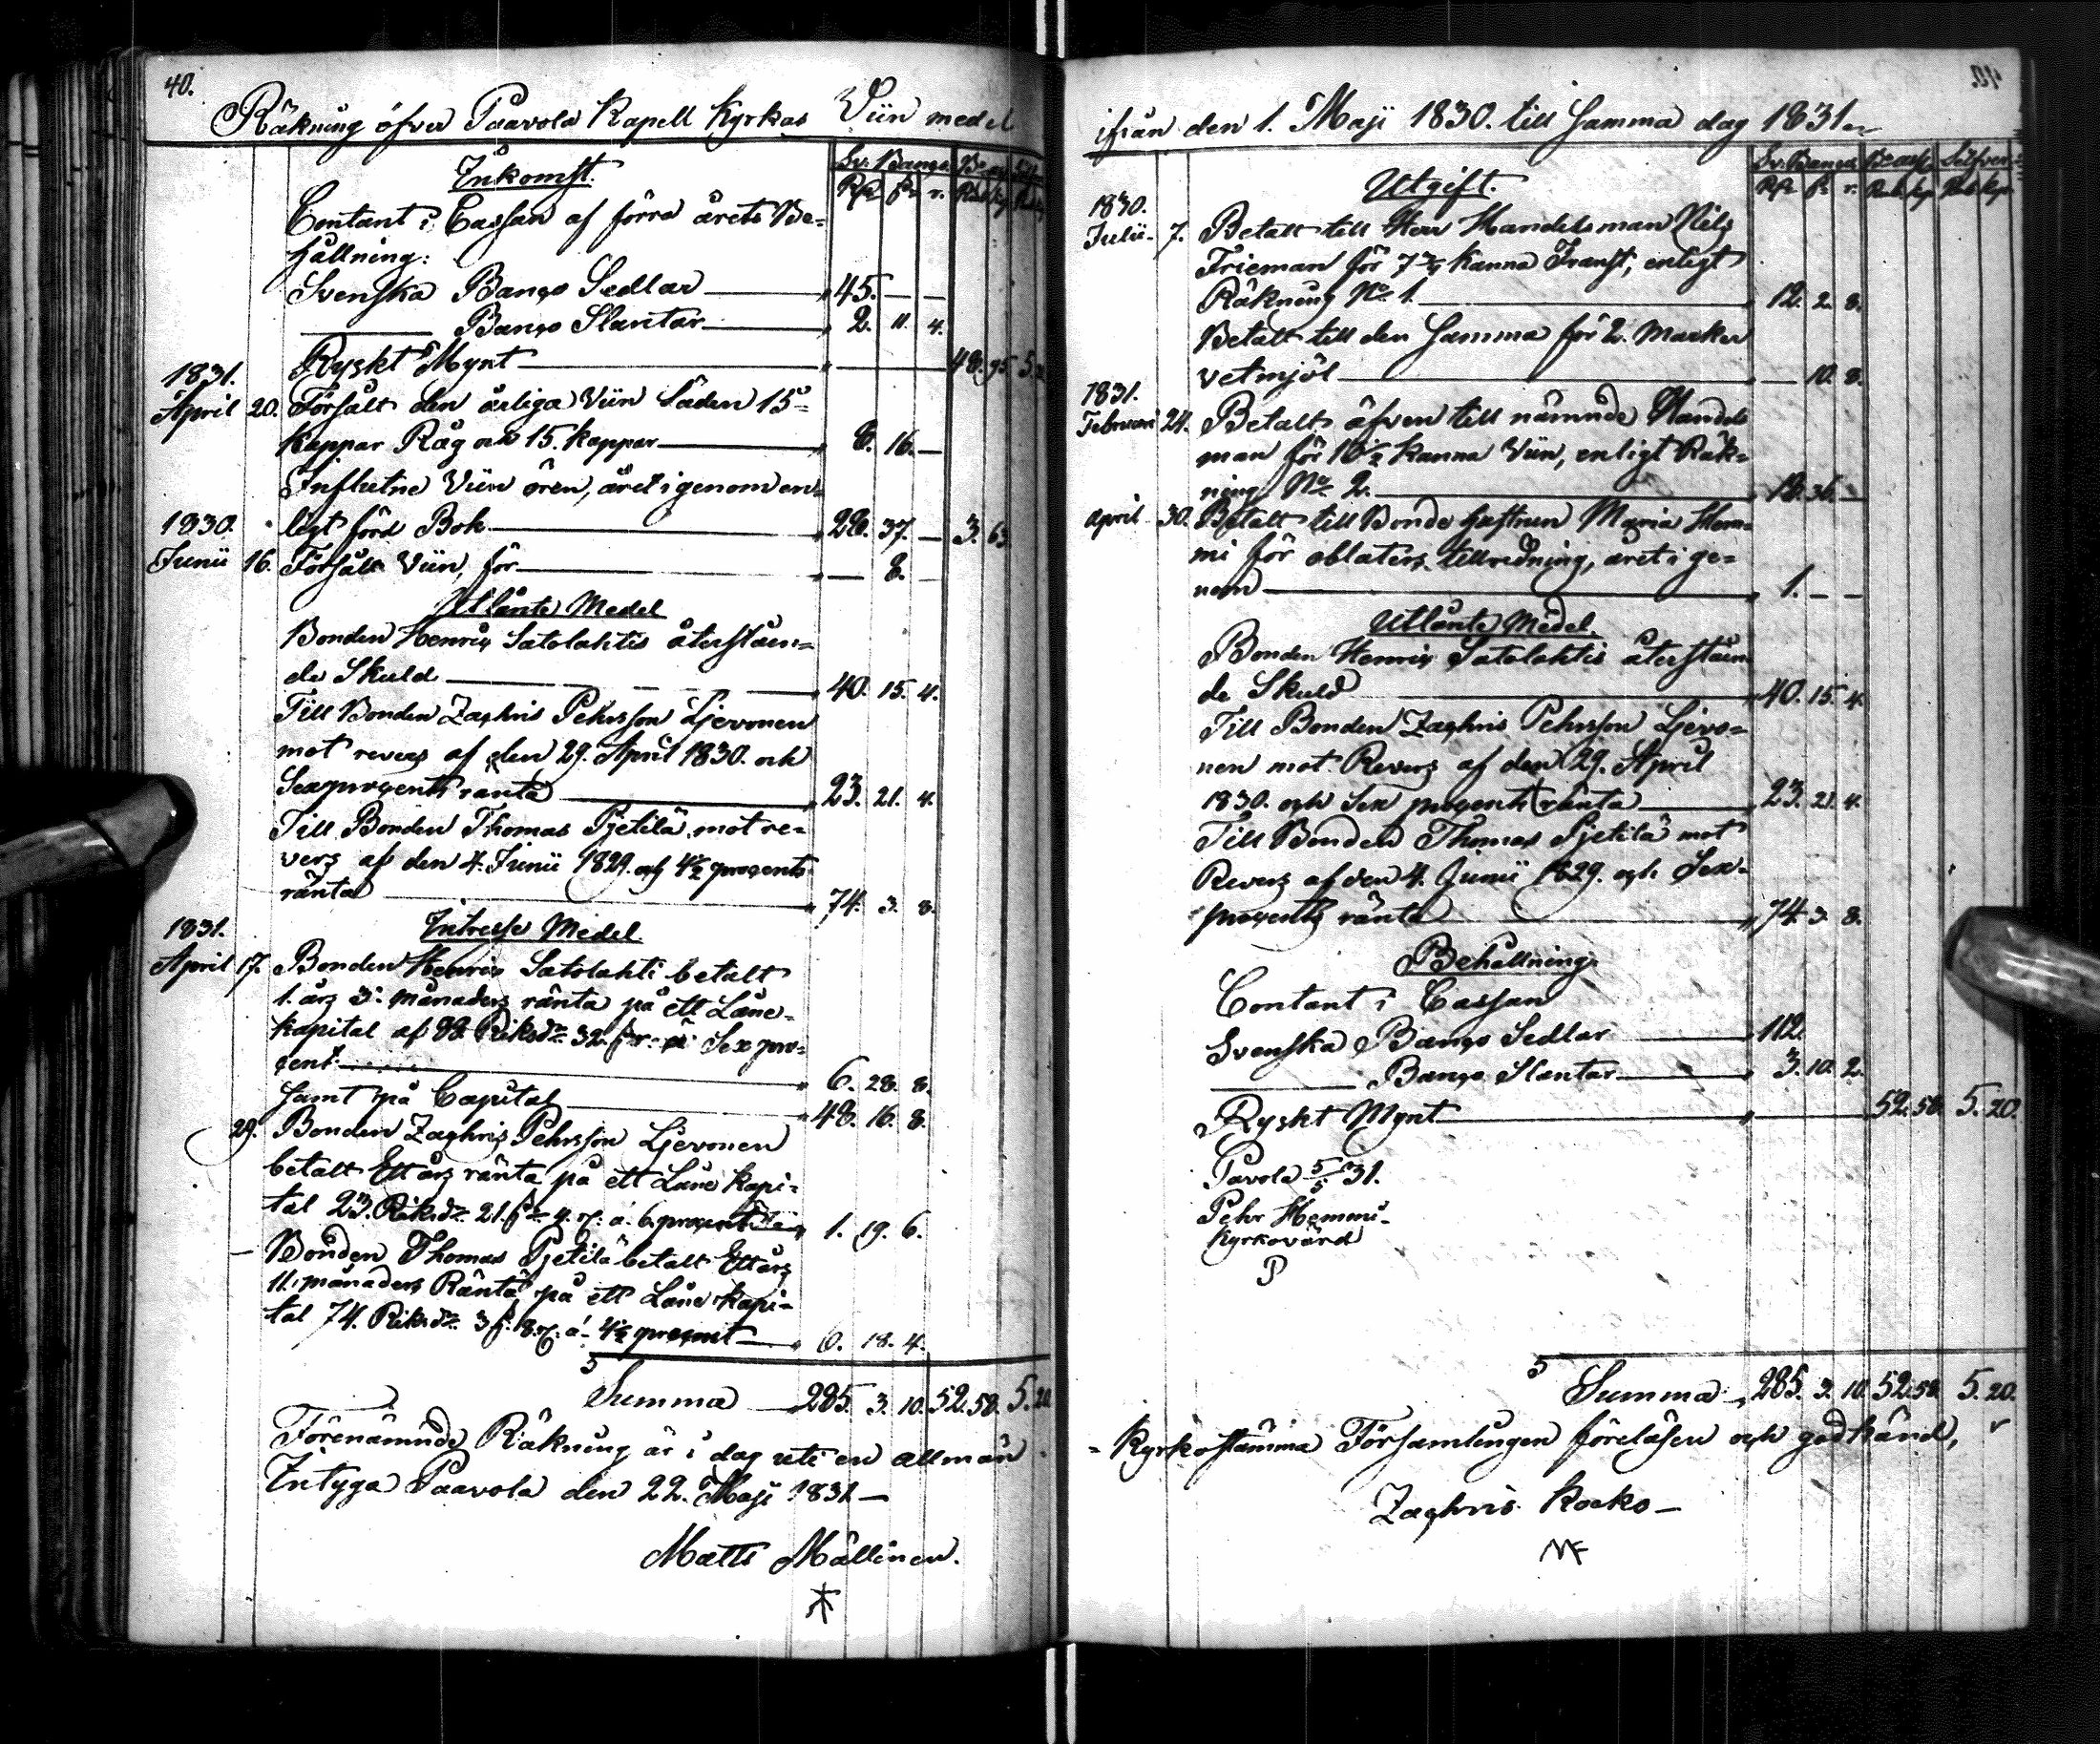 40.
Räkning öfver Paavola Kapell Kyrkas Viin medel
Inkomst.
Sv: Banco
Rdr
Contant i Cassan af förra årets Be=
hållning:
Svenska Banco Sedlar 45. — —
Banco Slantar 2. 11. 4.
Ryskt Mynt 48. 95 5.
1831.
April 20. Försålt den årliga Viin Säden 15
kappar Råg och 15. kappar 8. 16. —
Influtne Viin ören, året igenom en=
1830. ligt förd Bok 28. 37. — 3. 63
Junii 16. Försålt Viin, för — 8. —
Utlånte Medel
Bonden Henric Satolahtis återståen=
de Skuld 40. 15. 4.
Till Bonden Zachris Pehrsson Ljevonen
mot revers af den 29. April 1830. och
Sexprocents ränta 23. 21. 4.
Till Bonden Thomas Pjetilä mot re=
vers af den 4. Junii 1829. och 4½ procents
ränta 74. 3. 8.
1831. Intresse Medel
April 17. Bonden Henric Satolahti betalt
1. års 3. månaders ränta på ett Låne=
kapital af 88. Riksdr 32. s. a Sex pro=
cent
Samt på Capital 6. 28. 8.
48. 16. 8.
29. Bonden Zachris Pehrsson Ljevonen
betalt Ett års ränta på ett Låne kapi=
tal 23. Riksdr 21. s 4. r. a 6. procent 1. 19. 6.
— Bonden Thomas Pjetilä betalt Ett års
11. månaders Ränta på ett Låne kapi=
tal 74. Riksdr 3 s. 8. r. a 4½ procent 6. 18. 4.
Summa 285. 3. 10. 52. 58. 5. 20
Förenämnde Räkning är i dag uti en allmän
Intyga Paavola den 22. Maji 1831 —
Matts Mällinen.
ifrån den 1. Maji 1830. till samma dag 1831
Utgift.
Sv: Banco Silfver
1830.
Julii 7. Betalt till Herr Handelsman Nils
Frieman för 7 ¾ kanna Franst, enligt
Räkning No 1. 12. 2. 8.
Betalt till den samma för 2. marker
vetmjöl — 10. 8.
1831.
Februari 24. Betalt äfven till nämnde Handels
man för 10½ kanna Viin, enligt Räk=
ning No 2. 18. 36. —
April 30. Betalt till Bonde hustrun Maria Hem=
mi för oblaters tillredning, året i ge=
nom 1. — —
Utlånte Medel.
Bonden Henric Satolahtis återståen
de Skuld 40. 15. 4.
Till Bonden Zachris Pehrsson Ljevo=
nen mot Revers af den 29. April
1830. och Sex procents ränta 23. 21. 4.
Till Bonden Thomas Pjetilä mot
Revers af den 4. Junii 1829. och Sex
procents ränta 74 3. 8.
Behållning
Contant i Cassan
Svenska Banco Sedlar 112.
Banco Slantar 3. 10. 2.
Ryskt Mynt 52. 58. 5. 20.
Pavola 5/5 31.
Pehr Hemmi
Kyrkovärd
P
Summa 285. 3. 10. 52. 58. 5. 20.
= Kyrkostämma Församlingen föreläsen och godkänd,
Zachris Kocko —